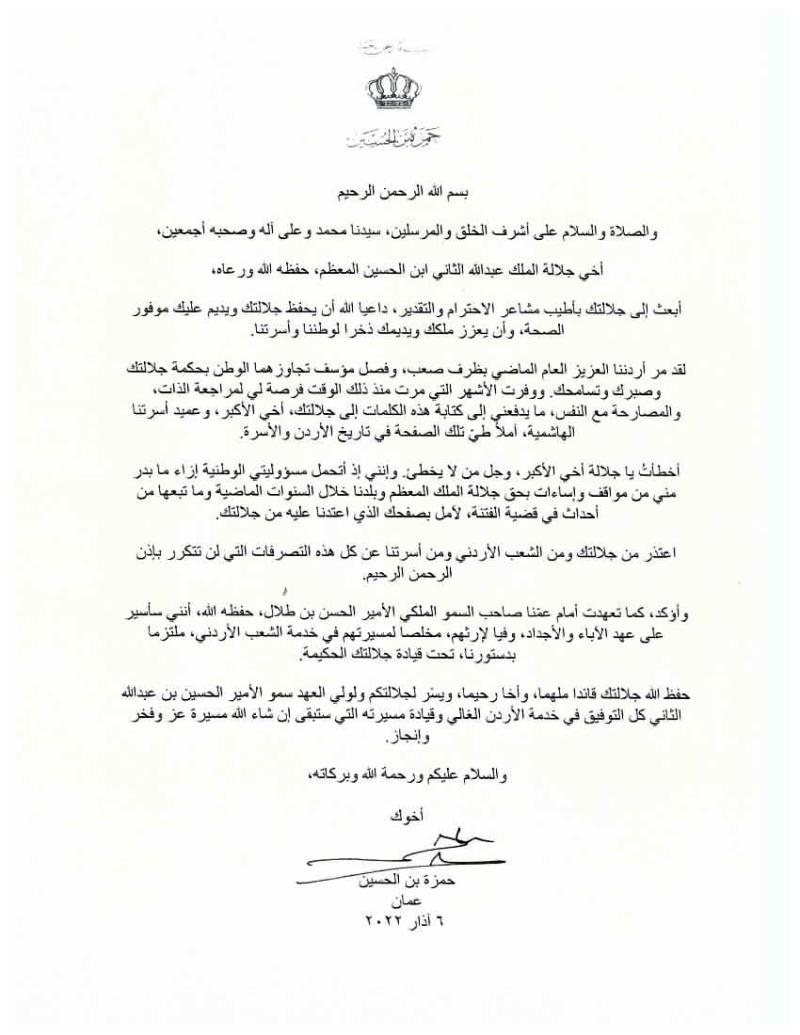 حمزة بن الحسين
بسم الله الرحمن الرحيم
والصلاة والسلام على أشرف الخلق والمرسلين، سيدنا محمد وعلى آله وصحبه أجمعين،
أخي جلالة الملك عبدالله الثاني ابن الحسين المعظم، حفظه الله ورعاه،
أبعث إلى جلالتك بأطيب مشاعر الاحترام والتقدير، داعيا الله أن يحفظ جلالتك ويديم عليك موفور
الصحة، وأن يعزز ملكك ويديمك ذخرا لوطننا وأسرتنا.
لقد مر أردننا العزيز العام الماضي بظرف صعب، وفصل مؤسف تجاوزهما الوطن بحكمة جلالتك
وصبرك وتسامحك. ووفرت الأشهر التي مرت منذ ذلك الوقت فرصة لي لمراجعة الذات،
والمصارحة مع النفس، ما يدفعني إلى كتابة هذه الكلمات إلى جلالتك، أخي الأكبر، وعميد أسرتنا
الهاشمية، أملاً طيّ تلك الصفحة في تاريخ الأردن والأسرة.
أخطأتُ يا جلالة أخي الأكبر، وجل من لا يخطئ. وإنني إذ أتحمل مسؤوليتي الوطنية إزاء ما بدر
مني من مواقف وإساءات بحق جلالة الملك المعظم وبلدنا خلال السنوات الماضية وما تبعها من
أحداث في قضية الفتنة، لآمل بصفحك الذي اعتدنا عليه من جلالتك.
اعتذر من جلالتك ومن الشعب الأردني ومن أسرتنا عن كل هذه التصرفات التي لن تتكرر بإذن
الرحمن الرحيم.
وأؤكد، كما تعهدت أمام عمّنا صاحب السمو الملكي الأمير الحسن بن طلال، حفظه الله، أنني سأسير
على عهد الأباء والأجداد، وفيا لإرثهم، مخلصا لمسيرتهم في خدمة الشعب الأردني، ملتزما
بدستورنا، تحت قيادة جلالتك الحكيمة.
حفظ الله جلالتك قائدا ملهما، وأخا رحيما، ويسّر لجلالتكم ولولي العهد سمو الأمير الحسين بن عبدالله
الثاني كل التوفيق في خدمة الأردن الغالي وقيادة مسيرته التي ستبقى إن شاء الله مسيرة عز وفخر
وإنجاز.
والسلام عليكم ورحمة الله وبركاته،
أخوك
حمزة بن الحسين
عمان
٦ آذار ٢٠٢٢